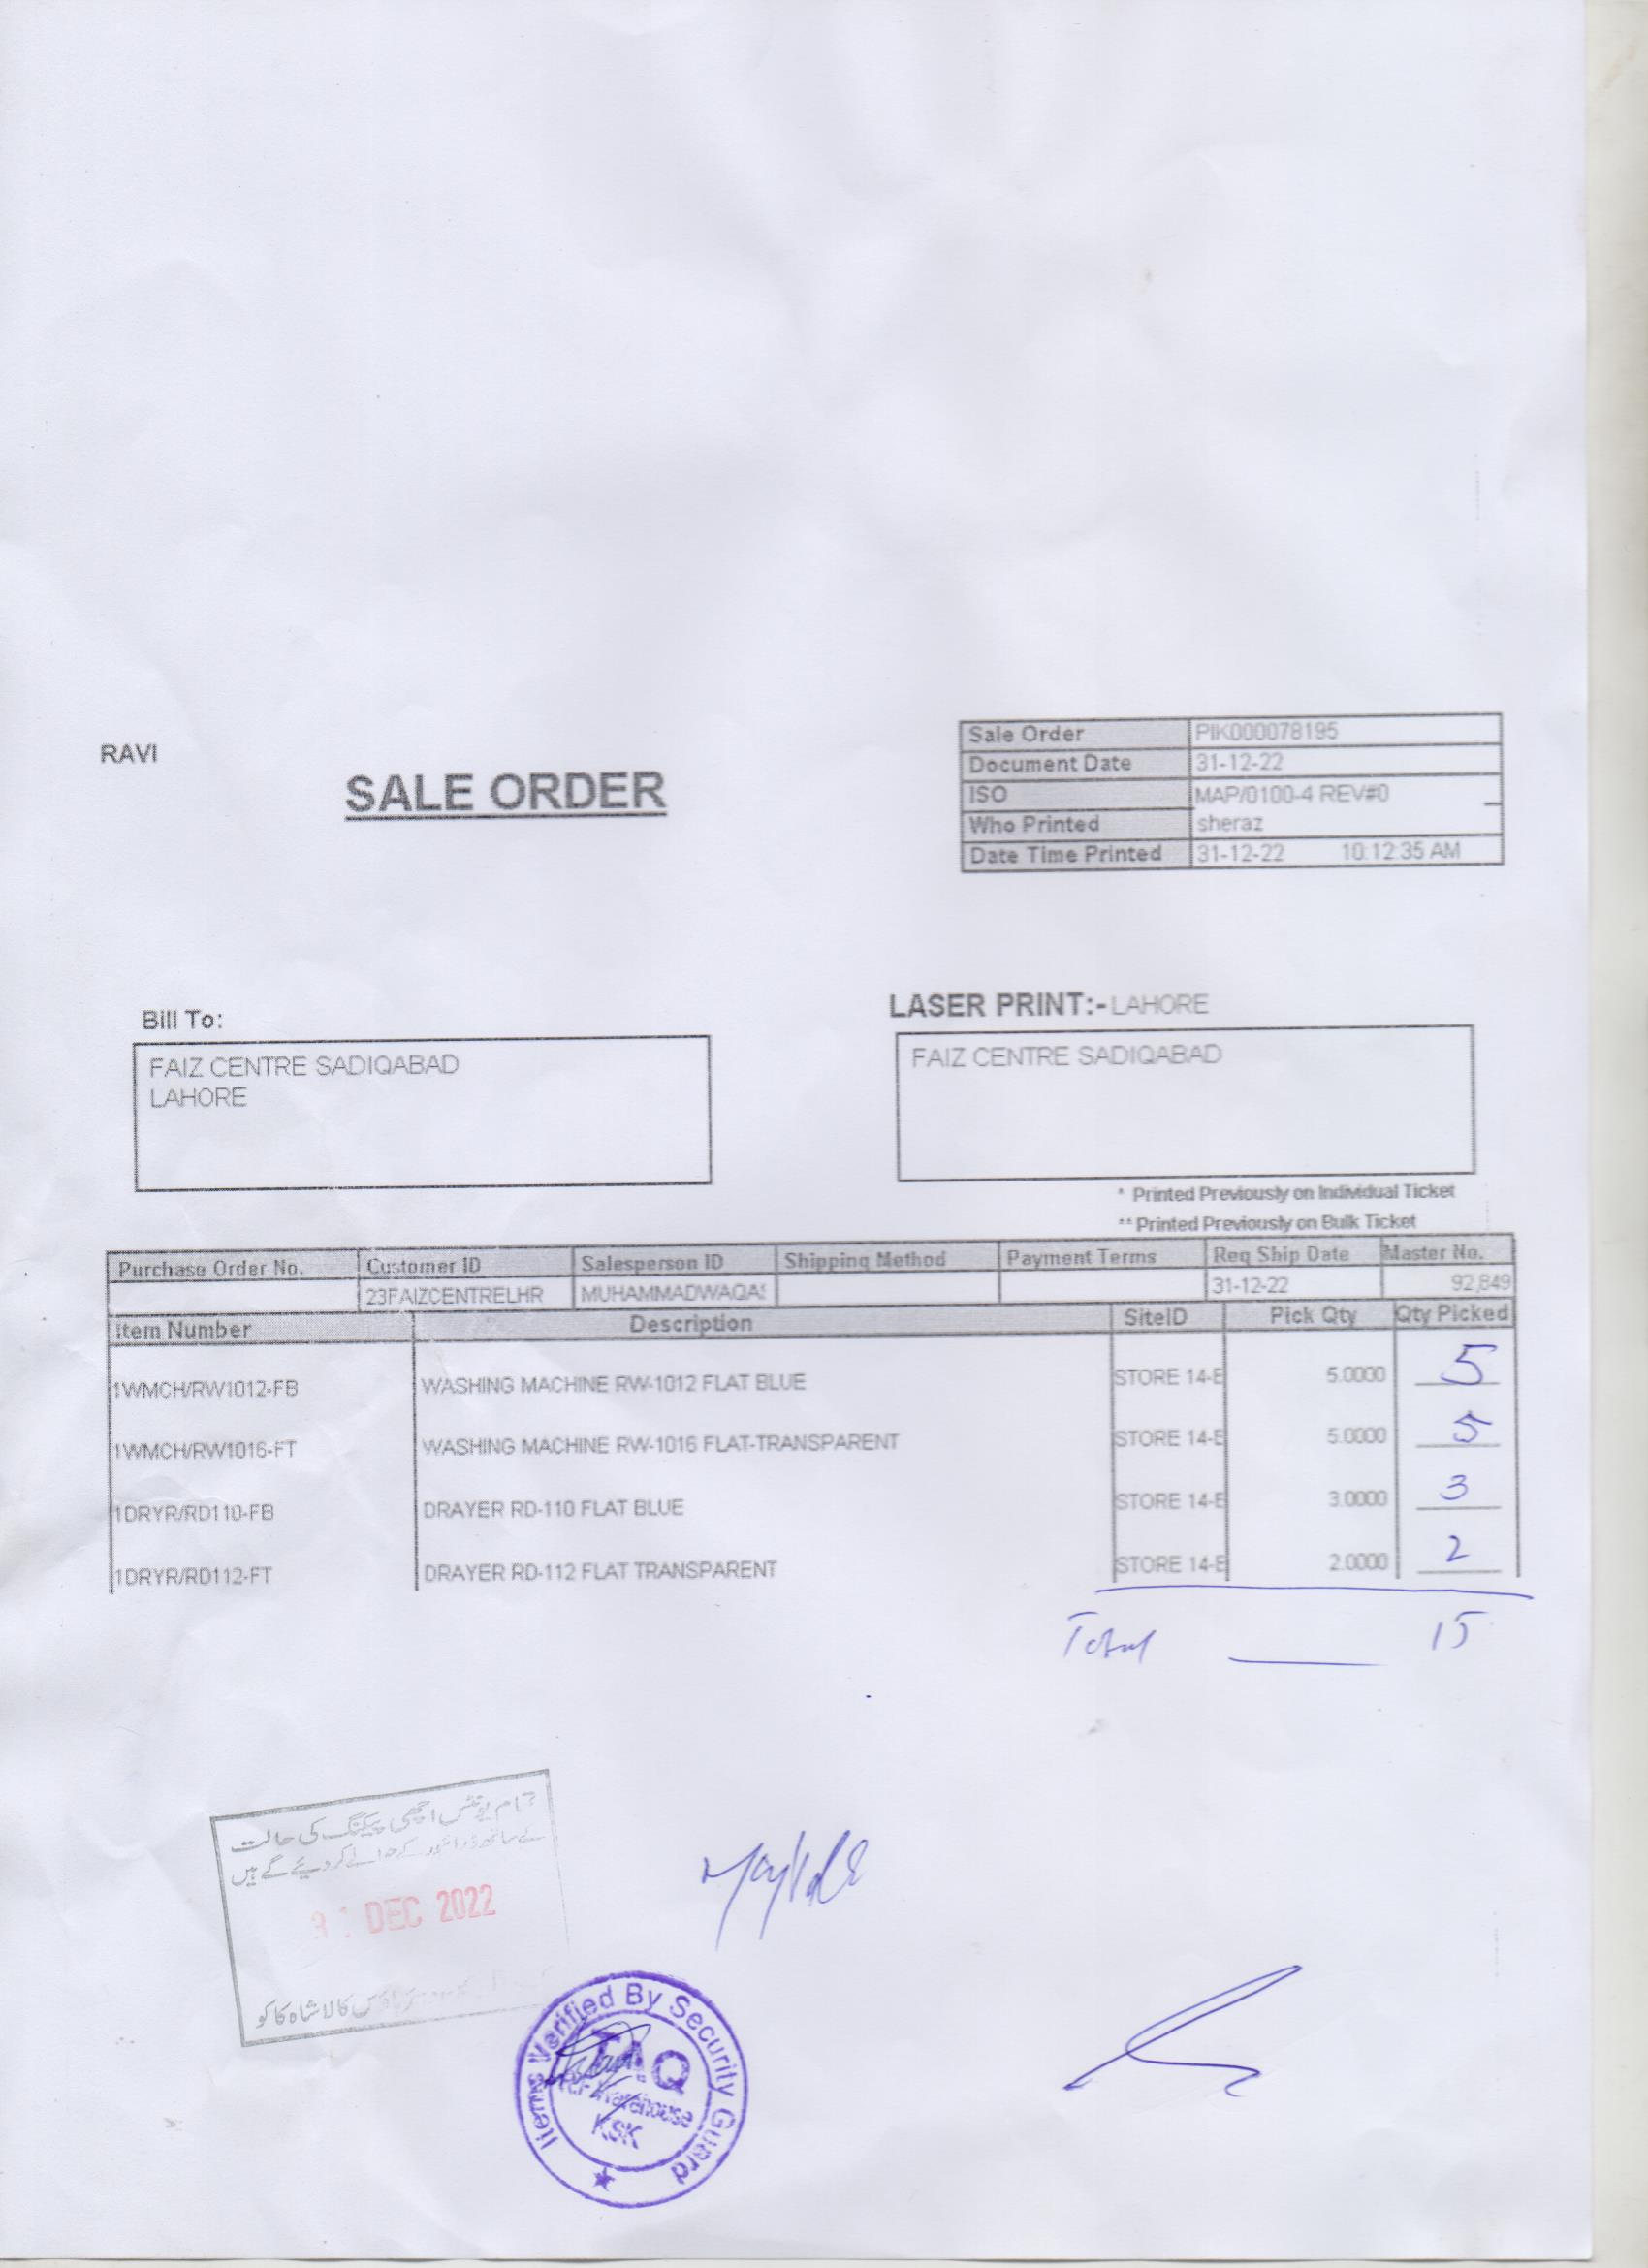 RAVI
SALE ORDER
Sale Order PIK000078195
Document Date 31-12-22
ISO MAP/0100-4 REV#0
Who Printed sheraz
Date Time Printed 31-12-22 10:12:35 AM
Bill To:
FAIZ CENTRE SADIQABAD
LAHORE
LASER PRINT:- LAHORE
FAIZ CENTRE SADIQABAD
* Printed Previously on Individual Ticket
** Printed Previously on Bulk Ticket
Purchase Order No. Customer ID Salesperson ID Shipping Method Payment Terms Req Ship Date Master No.
23FAIZCENTRELHR MUHAMMADWAQAS 31-12-22 92,849
Item Number Description SiteID Pick Qty Qty Picked
1WMCH/RW1012-FB WASHING MACHINE RW-1012 FLAT BLUE STORE 14-E 5.0000 5
1WMCH/RW1016-FT WASHING MACHINE RW-1016 FLAT-TRANSPARENT STORE 14-E 5.0000 5
1DRYR/RD110-FB DRAYER RD-110 FLAT BLUE STORE 14-E 3.0000 3
1DRYR/RD112-FT DRAYER RD-112 FLAT TRANSPARENT STORE 14-E 2.0000 2
Total 15
تمام یونٹس اچھی پیکنگ کی حالت
کے ساتھ ڈرائیور کے حوالے کر دیئے گئے ہیں
DEC 2022
کالا شاہ کاکو
Items Verified By Security Guard
TAQ
Warehouse
KSK